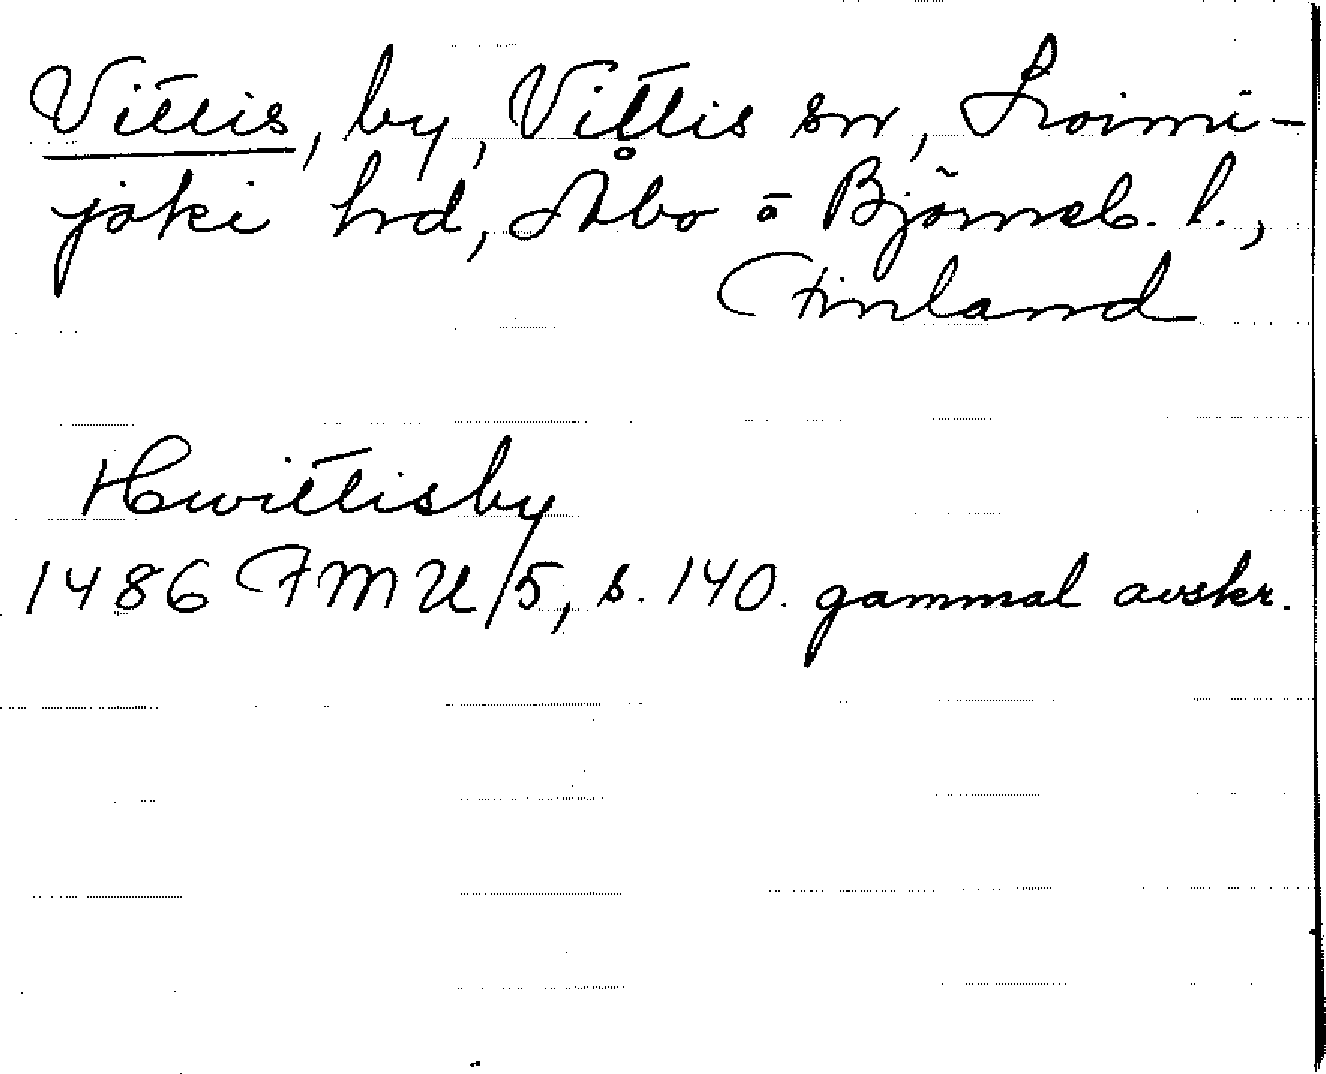 Vittis, by, Vittis sn, Loimi-
joki hd, Åbo o Björneb. l.,
Finland
Hwittisby
1486 FMU/5, s. 140. gammal avskr.